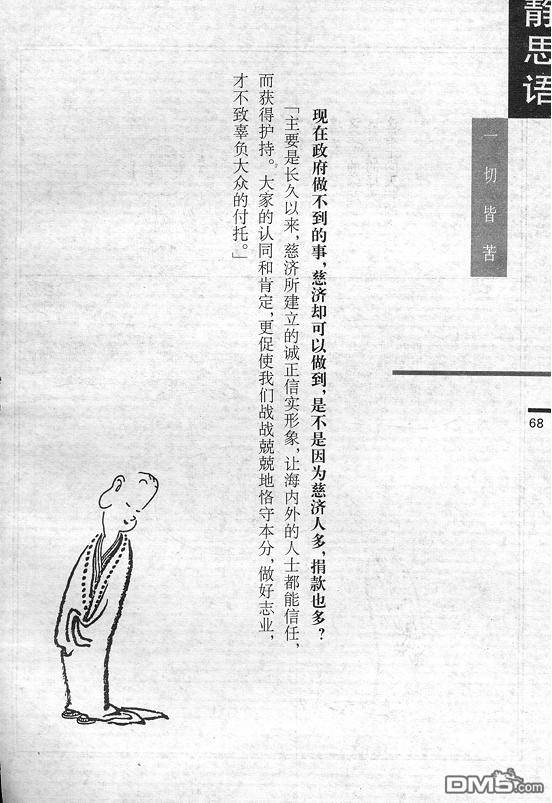 静思语
一切皆苦
68
现在政府做不到的事，慈济却可以做到，是不是因为慈济人多，捐款也多？
「主要是长久以来，慈济所建立的诚正信实形象，让海内外的人士都能信任，
而获得护持。大家的认同和肯定，更促使我们战战兢兢地恪守本分，做好志业，
才不致辜负大众的付托。」
DM5.com